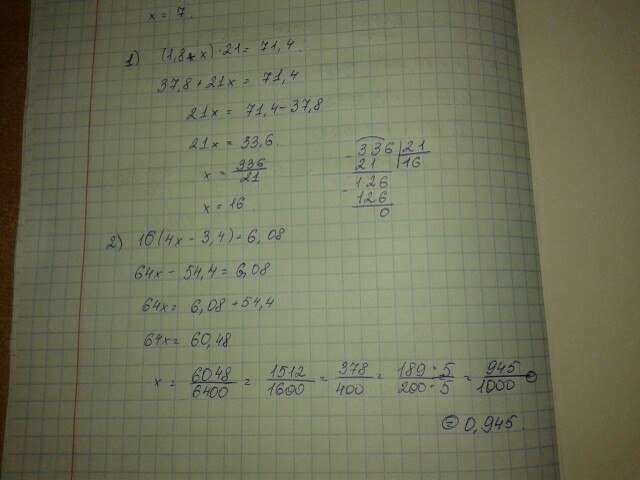 x = 7.
1) (1,8 + x) · 21 = 71,4.
37,8 + 21x = 71,4
21x = 71,4 - 37,8
21x = 33,6.
x = 336/21
x = 16.
- 336 | 21
21 | 16
- 126
126
0
2) 16(4x - 3,4) = 6,08
64x - 54,4 = 6,08
64x = 6,08 + 54,4
64x = 60,48
x = 6048/6400 = 1512/1600 = 378/400 = 189 · 5/200 · 5 = 945/1000 =
= 0,945.